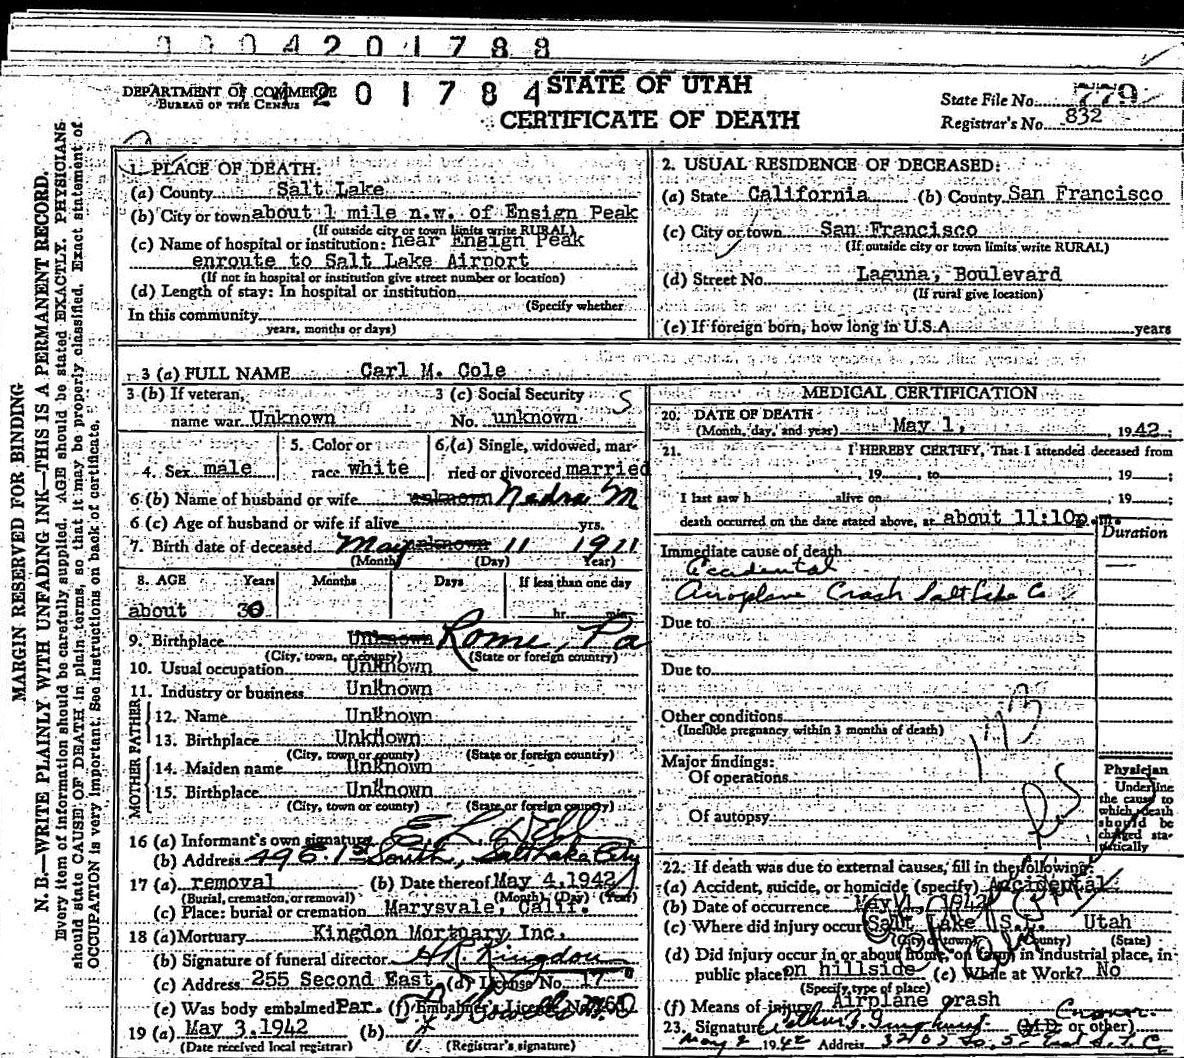 0004201788
DEPARTMENT OF COMMERCE
BUREAU OF THE CENSUS
4201784
STATE OF UTAH
CERTIFICATE OF DEATH
State File No. 779
Registrar's No. 832
MARGIN RESERVED FOR BINDING
N. B.—WRITE PLAINLY WITH UNFADING INK—THIS IS A PERMANENT RECORD.
Every item of information should be carefully supplied. AGE should be stated EXACTLY. PHYSICIANS
should state CAUSE OF DEATH in plain terms, so that it may be properly classified. Exact statement of
OCCUPATION is very important. See instructions on back of certificate.
1. PLACE OF DEATH:
(a) County Salt Lake
(b) City or town about 1 mile n.w. of Ensign Peak
(If outside city or town limits write RURAL)
(c) Name of hospital or institution: near Ensign Peak
enroute to Salt Lake Airport
(If not in hospital or institution give street number or location)
(d) Length of stay: In hospital or institution
(Specify whether
In this community
years, months or days)
2. USUAL RESIDENCE OF DECEASED:
(a) State California (b) County San Francisco
(c) City or town San Francisco
(If outside city or town limits write RURAL)
(d) Street No. Laguna, Boulevard
(If rural give location)
(e) If foreign born, how long in U.S.A. years
3 (a) FULL NAME Carl M. Cole
3 (b) If veteran, 3 (c) Social Security S
name war Unknown No. unknown
4. Sex male
5. Color or
race white
6.(a) Single, widowed, mar-
ried or divorced married
6 (b) Name of husband or wife unknown Nedra M
6 (c) Age of husband or wife if alive yrs.
7. Birth date of deceased May unknown 11 1911
(Month) (Day) Year)
8. AGE Years Months Days If less than one day
about 30 hr. min.
9. Birthplace Unknown Rome, Pa
(City, town, or county) (State or foreign country)
10. Usual occupation Unknown
11. Industry or business Unknown
FATHER
12. Name Unknown
13. Birthplace Unknown
(City, town or county) (State or foreign country)
MOTHER
14. Maiden name Unknown
15. Birthplace Unknown
(City, town or county) (State or foreign country)
16 (a) Informant's own signature E L
(b) Address 49 E. 1st South, Salt Lake City
17 (a) removal (b) Date thereof May 4,1942
(Burial, cremation, or removal) (Month) (Day) (Year)
(c) Place: burial or cremation Marysvale, Calif.
18 (a) Mortuary Kingdon Mortuary Inc.
(b) Signature of funeral director Kingdon
(c) Address 255 Second East (d) License No. 17
(e) Was body embalmed Par. (f) Embalmer's License No.
19 (a) May 3.1942 (b)
(Date received local registrar) (Registrar's signature)
MEDICAL CERTIFICATION
20. DATE OF DEATH
(Month, day, and year) May 1, , 1942;
21. I HEREBY CERTIFY, That I attended deceased from
, 19 , to , 19 ;
I last saw h alive on , 19 ;
death occurred on the date stated above, at about 11:10p.m.
Duration
Immediate cause of death
Accidental
Airoplane Crash Salt Lake Co
Due to
Due to
Other conditions
(Include pregnancy within 3 months of death)
173
Major findings:
Of operations
Of autopsy
Physician
Underline
the cause to
which death
should be
charged sta-
tistically
22. If death was due to external causes, fill in the following:
(a) Accident, suicide, or homicide (specify) Accidental
(b) Date of occurrence May 1, 1942
(c) Where did injury occur Salt Lake S.L. Utah
(City or town) (County) (State)
(d) Did injury occur in or about home, on farm, in industrial place, in
public place on hillside (e) While at Work? No
(Specify type of place)
(f) Means of injury Airplane crash
23. Signature (M.D. or other)
May 2 1942 Address